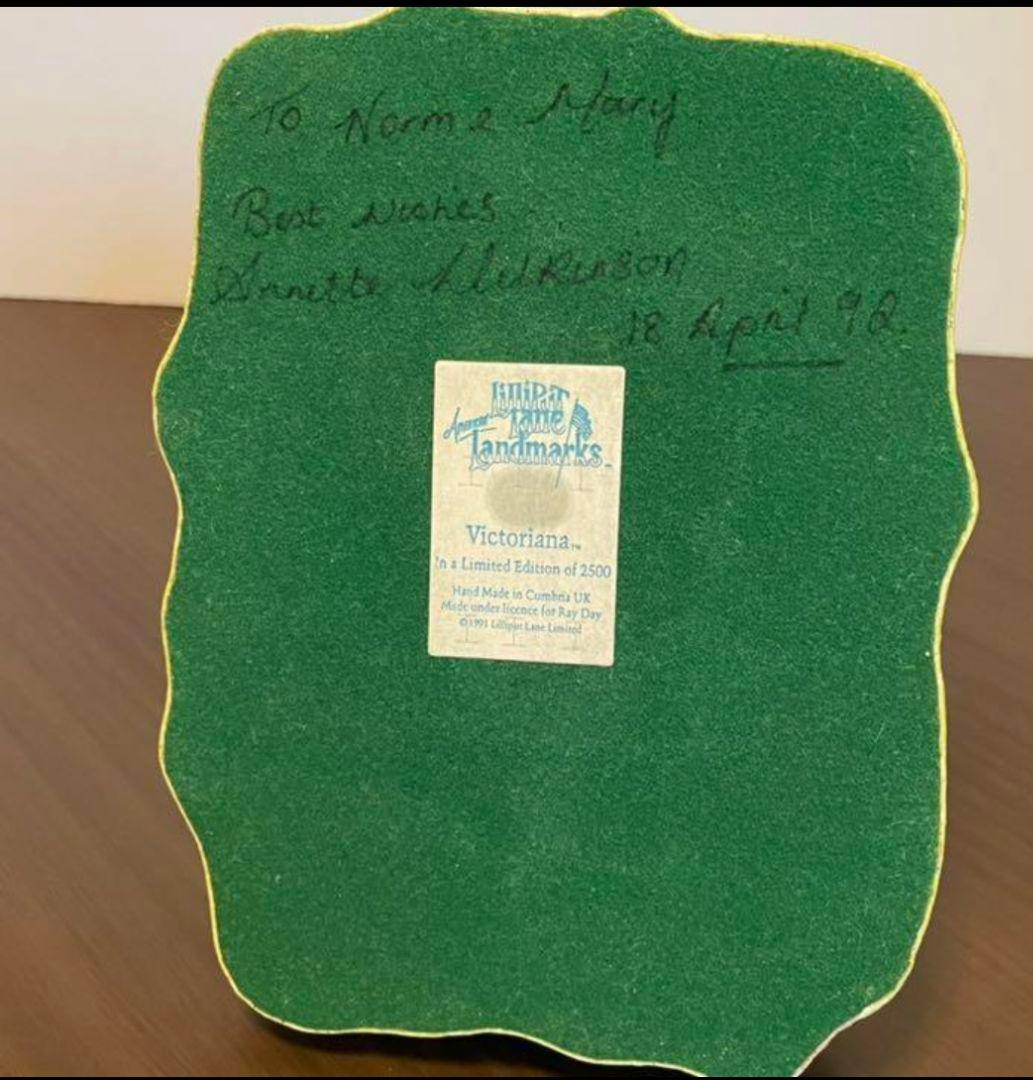 To Norm & Mary
Best Wishes
Annette Wilkinson
18 April 92.
Lilliput
Lane
American
Landmarks™
Victoriana™
In a Limited Edition of 2500
Hand Made in Cumbria UK
Made under licence for Ray Day
©1991 Lilliput Lane Limited